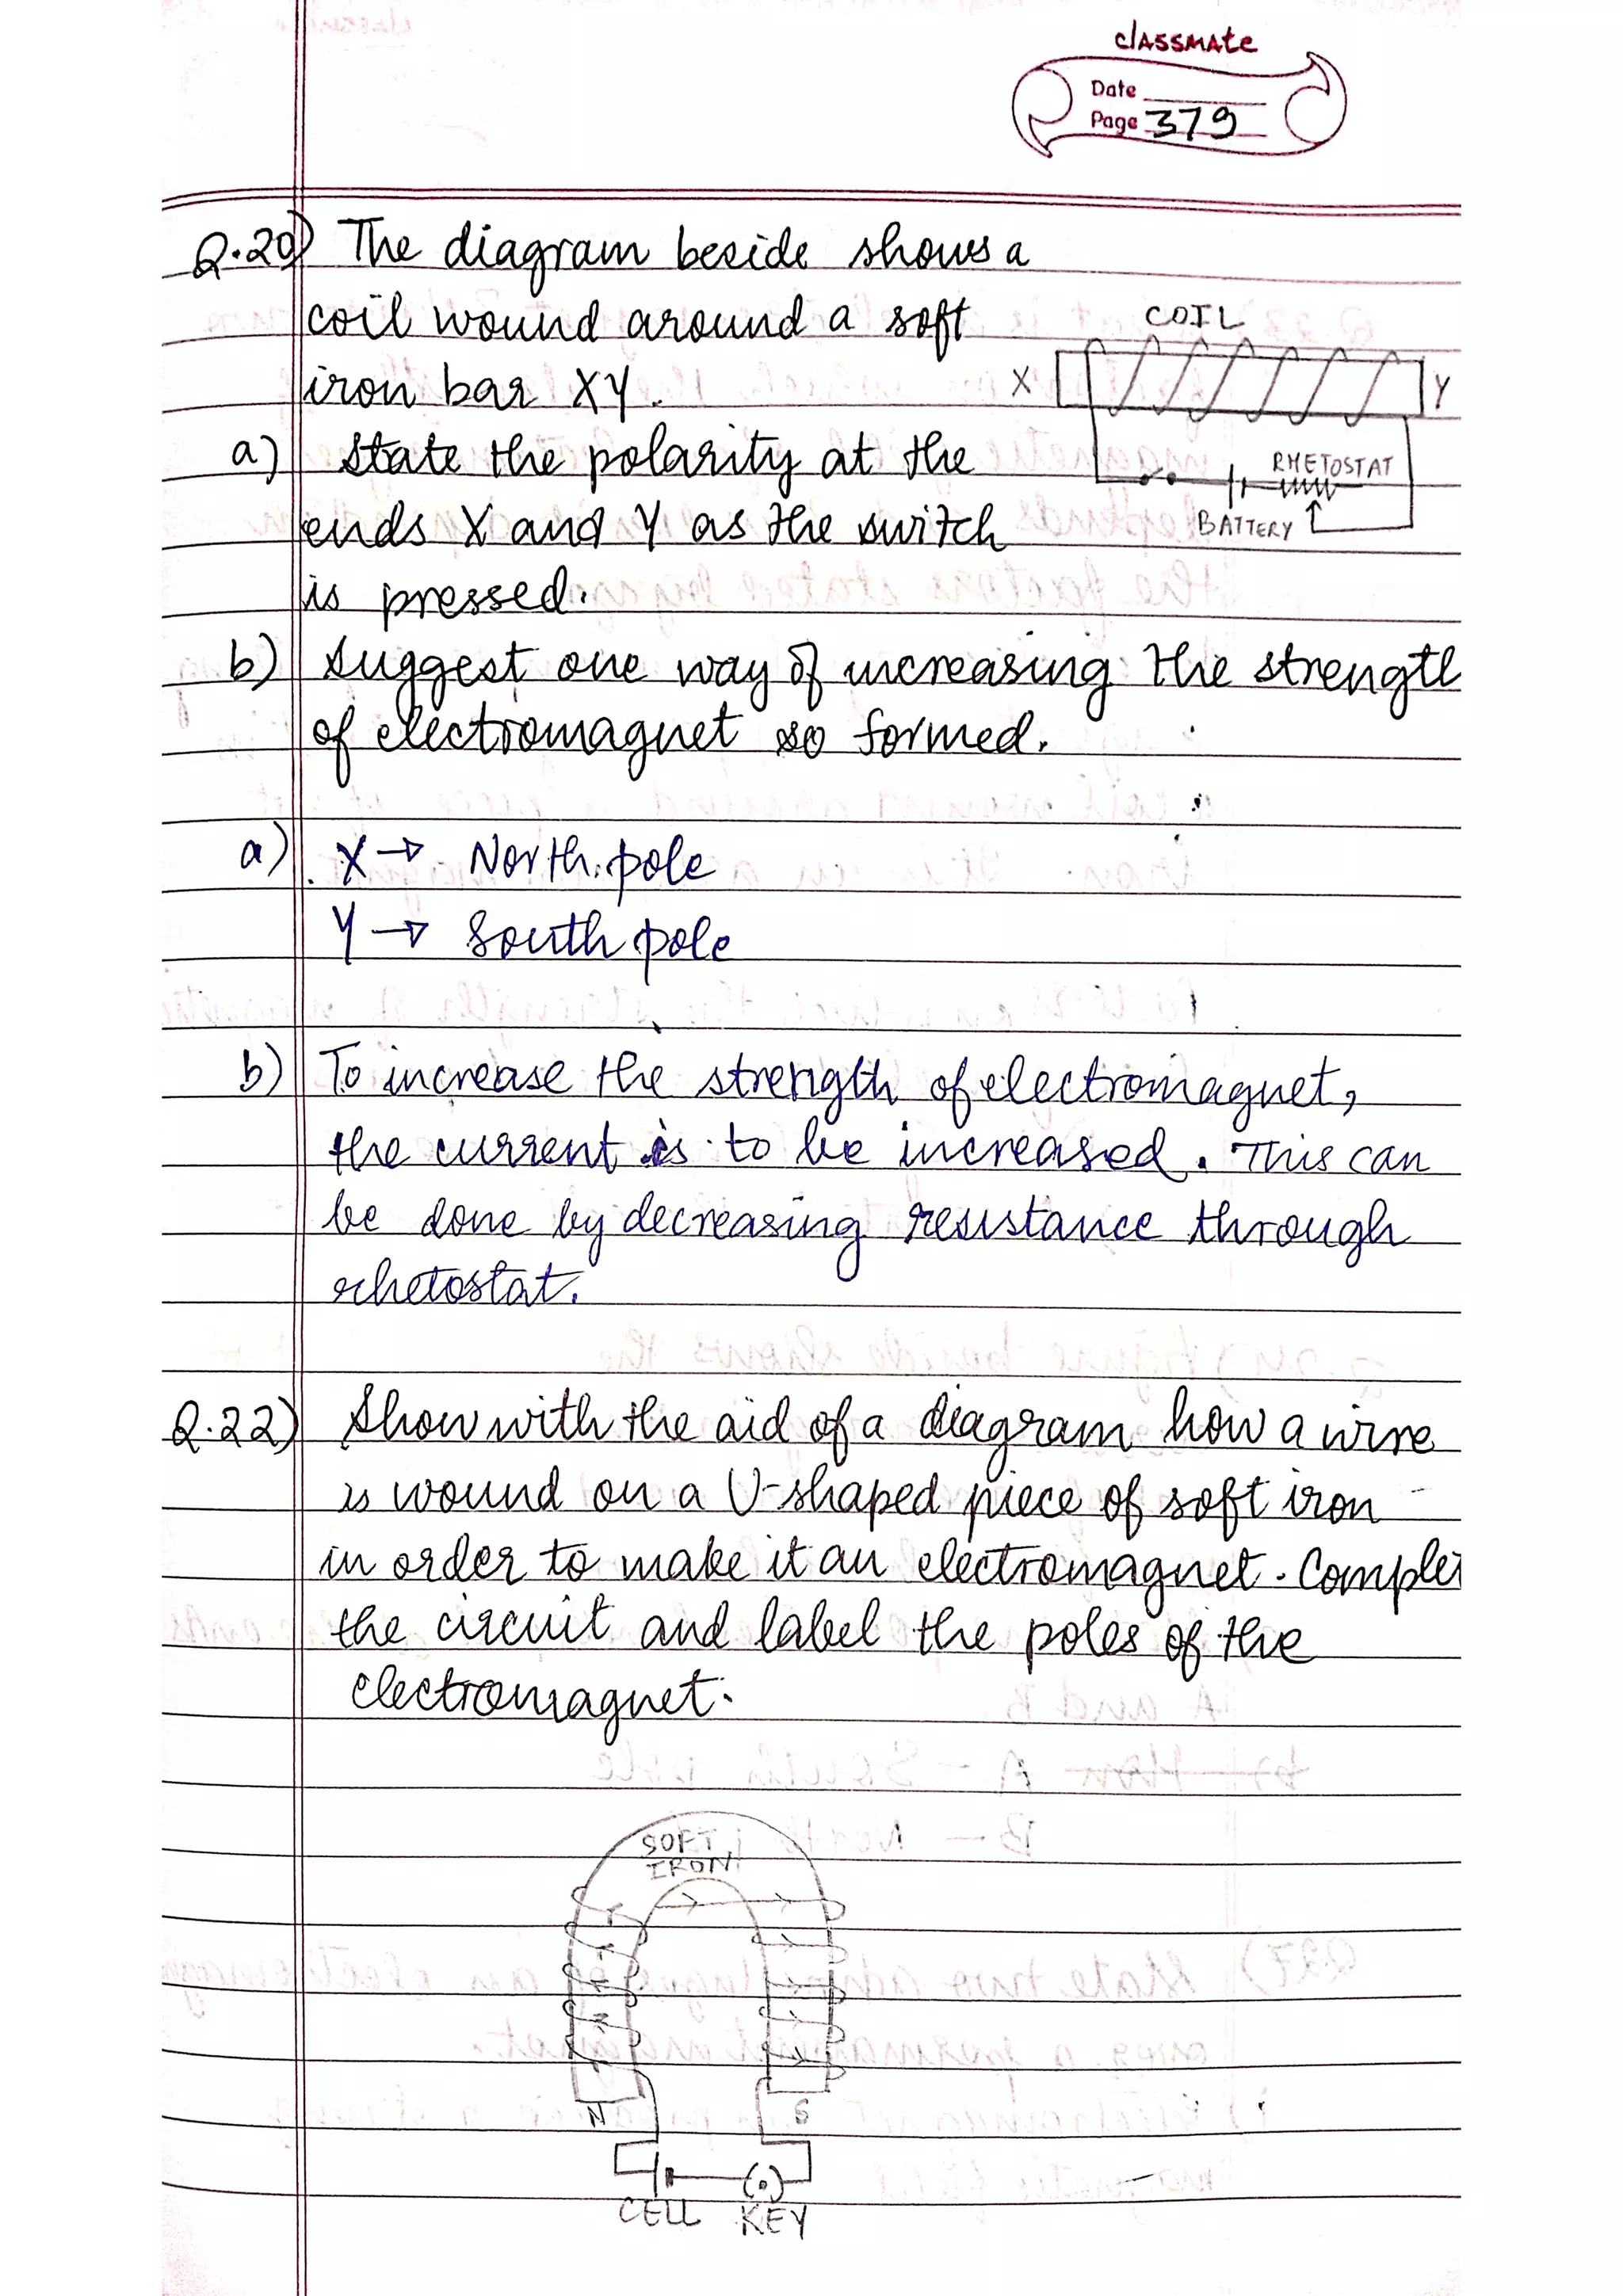 classmate
Date
Page 379
Q.20) The diagram beside shows a
coil wound around a soft
iron bar XY.
COIL
X
Y
RHETOSTAT
BATTERY
a) State the polarity at the
ends X and Y as the switch
is pressed.
b) Suggest one way of increasing the strength
of electromagnet so formed.
a) X → North pole
Y → South pole
b) To increase the strength of electromagnet,
the current is to be increased. This can
be done by decreasing resistance through
rhetostat.
Q.22) Show with the aid of a diagram how a wire
is wound on a U-shaped piece of soft iron
in order to make it an electromagnet. Complet
the circuit and label the poles of the
electromagnet.
SOFT
IRON
N
S
CELL KEY